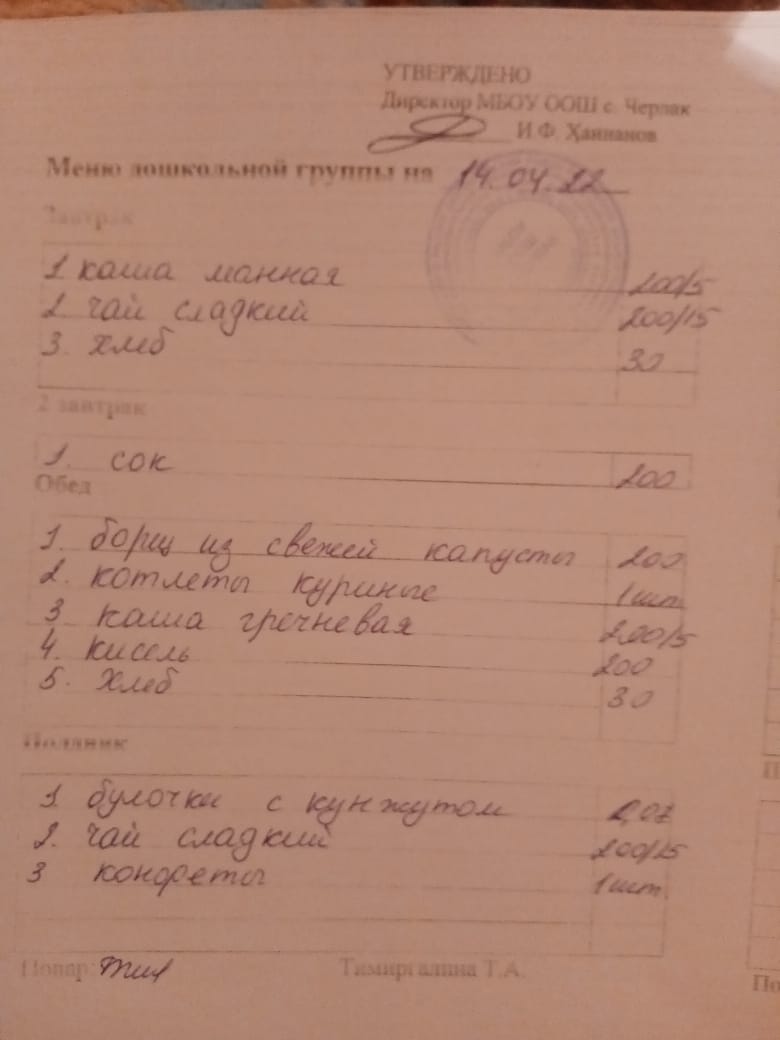 УТВЕРЖДЕНО
Директор МБОУ ООШ с. Черлак
И.Ф. Ханнанов
Меню дошкольной группы на 14.04.22
Завтрак
1 каша манная 200/5
2 чай сладкий 200/15
3. хлеб 30
2 завтрак
1. сок 200
Обед
1. борщ из свежей капусты 200
2. котлеты куриные 1шт
3 каша гречневая 200/5
4. кисель 200
5. хлеб 30
Полдник
1 булочки с кунжутом
2. чай сладкий 200/15
3 конфеты 1шт.
Повар: Тимиргалина Т.А.
П
По